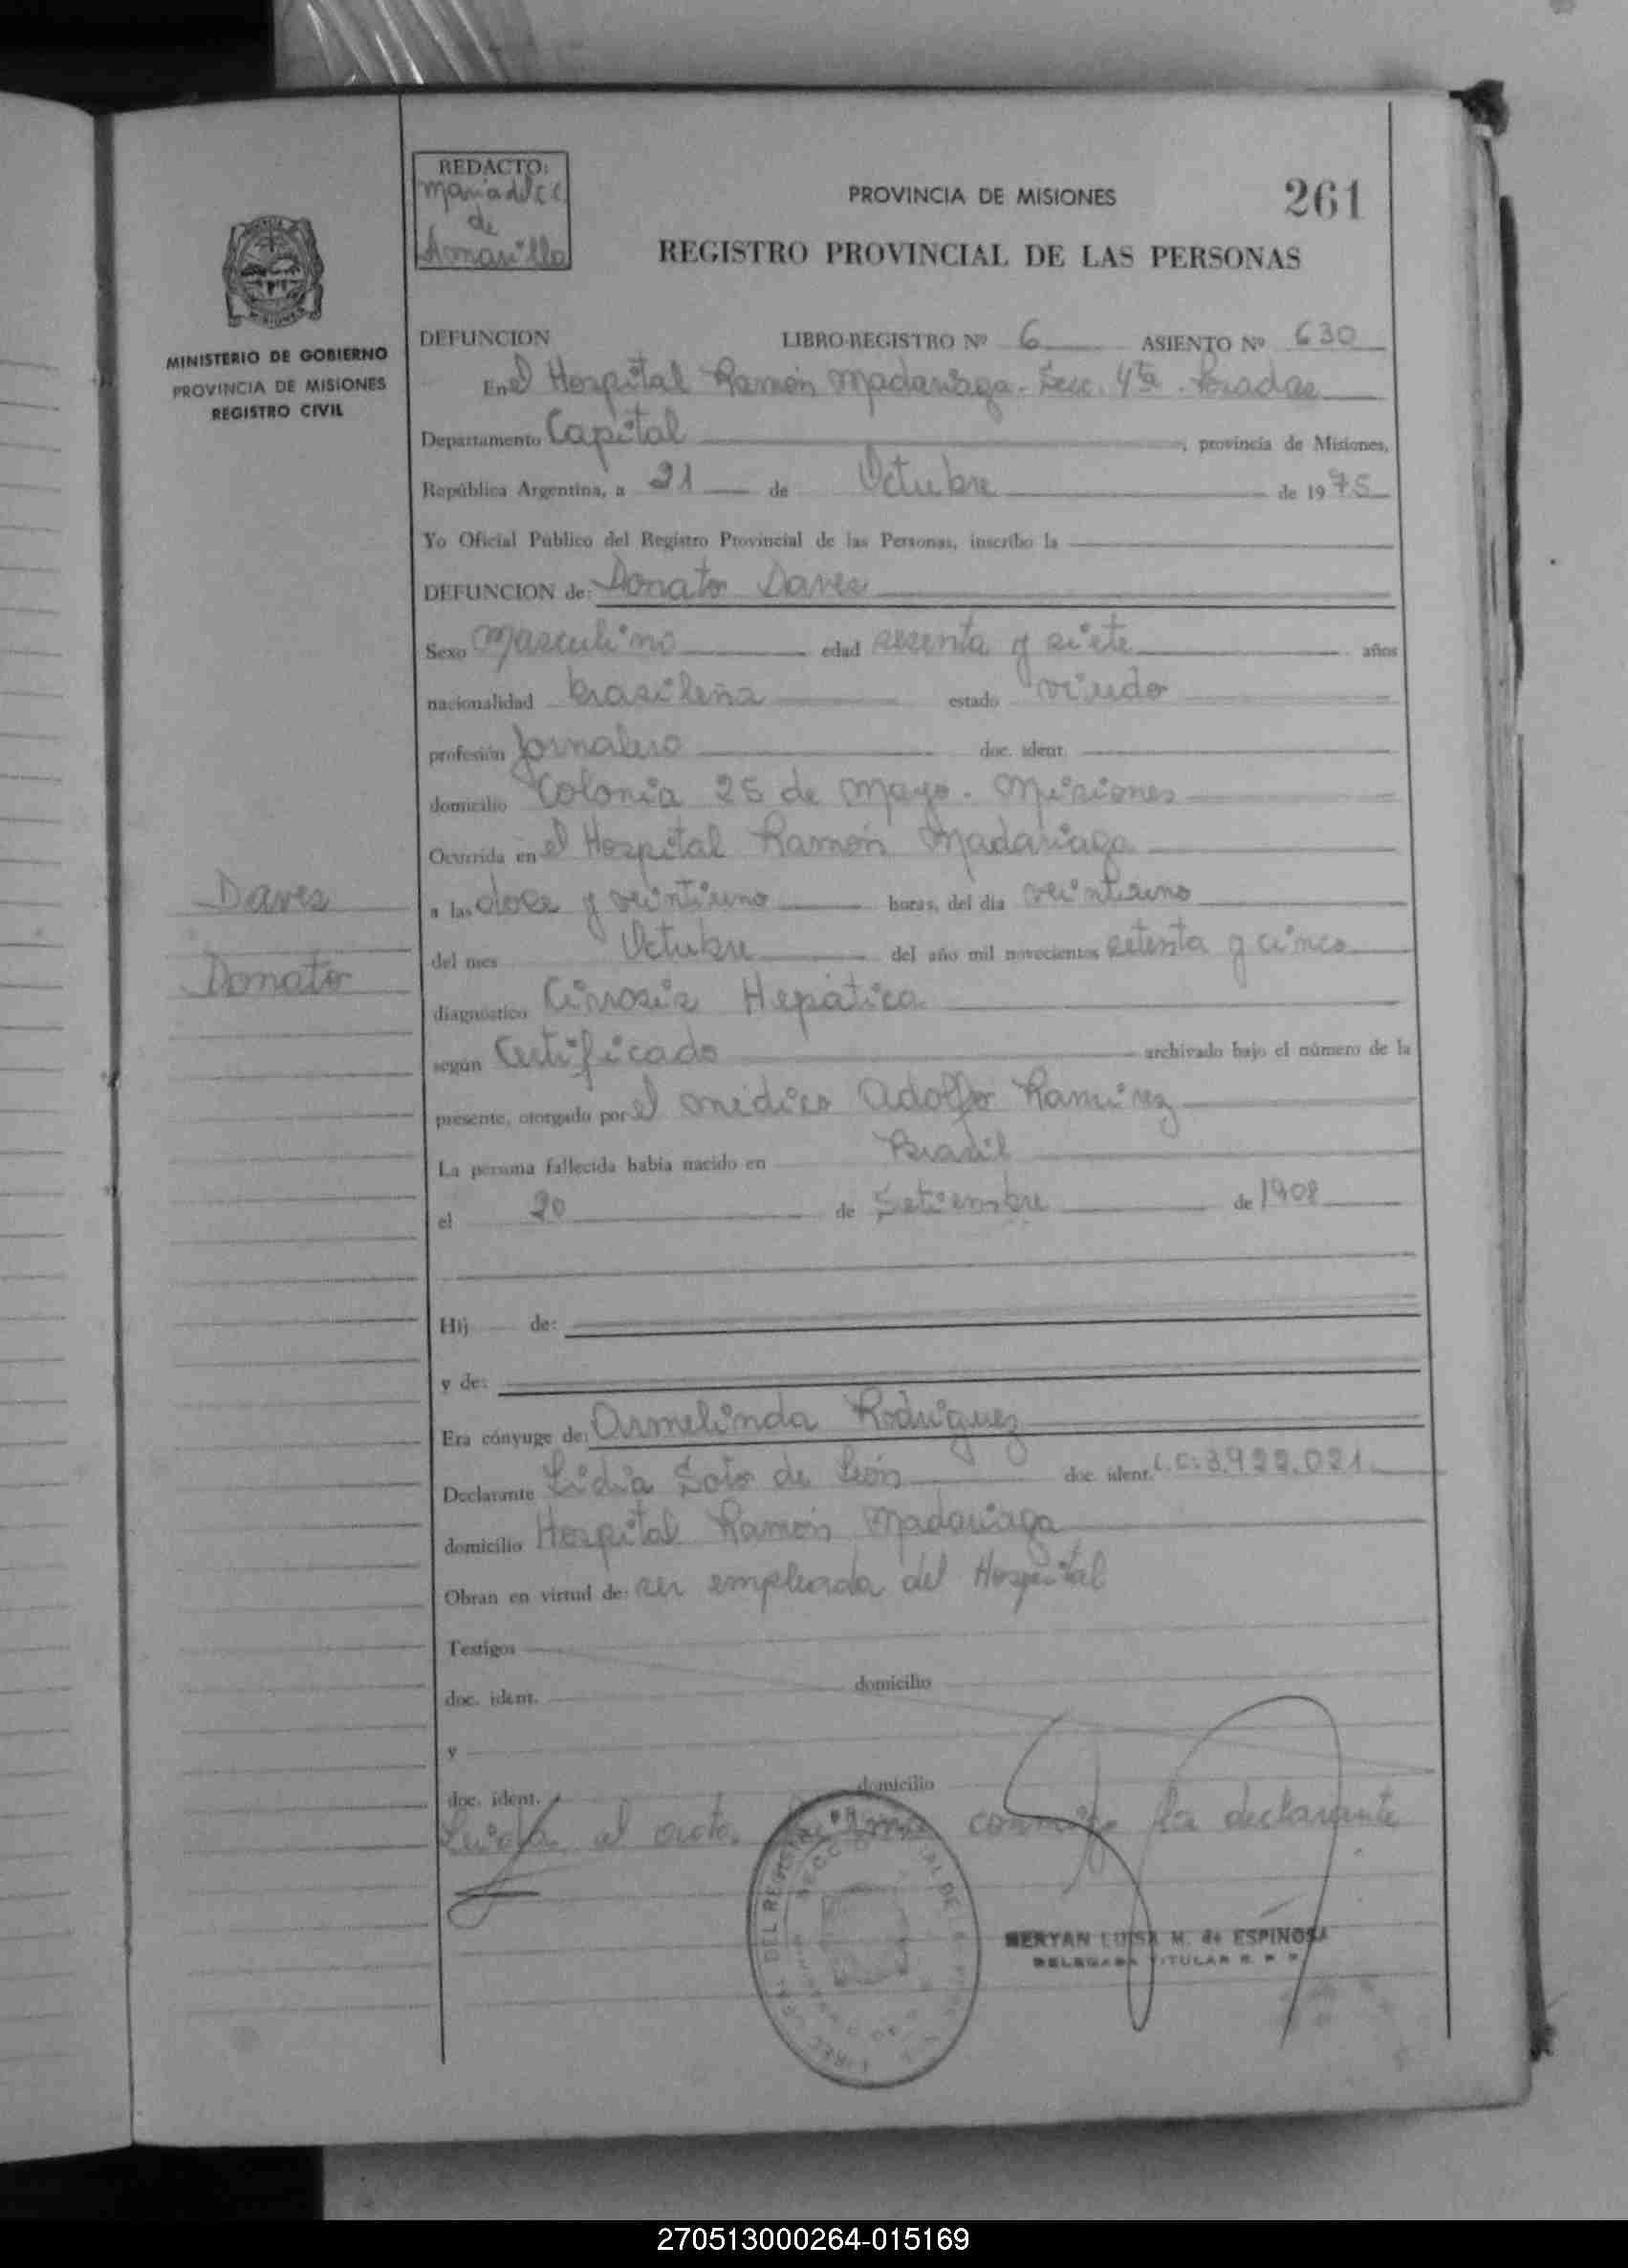 REDACTO:
Maria del C C
de
Amarilla
PROVINCIA DE MISIONES
261
REGISTRO PROVINCIAL DE LAS PERSONAS
MINISTERIO DE GOBIERNO
PROVINCIA DE MISIONES
REGISTRO CIVIL
DEFUNCION LIBRO-REGISTRO Nº 6 ASIENTO Nº 630
En el Hospital Ramón Madariaga - Secc. 4ta. Posadas
Departamento Capital, provincia de Misiones,
República Argentina, a 21 de Octubre de 1975
Yo Oficial Público del Registro Provincial de las Personas, inscribo la
DEFUNCION de: Donato Daves
Sexo Masculino edad sesenta y siete años
nacionalidad brasileña estado viudo
profesión Jornalero doc. ident.
domicilio Colonia 25 de Mayo. Misiones
Ocurrida en el Hospital Ramón Madariaga
a las doce y veintiuno horas, del día veintiuno
del mes Octubre del año mil novecientos setenta y cinco
diagnóstico Cirrosis Hepática
según Certificado archivado bajo el número de la
presente, otorgado por el médico Adolfo Ramirez
La persona fallecida había nacido en Brasil
el 20 de Setiembre de 1908
Hij de:
y de:
Era cónyuge de: Armelinda Rodriguez
Declarante Lidia Soto de León doc. ident. L.C: 3.922.021.
domicilio Hospital Ramón Madariaga
Obran en virtud de: ser empleada del Hospital
Testigos
doc. ident. domicilio
y
doc. ident. domicilio
Leida el acta, firma conmigo la declarante
Daves
Donato
MERYAN LUISA M. de ESPINOSA
DELEGADA TITULAR R. P. P.
270513000264-015169